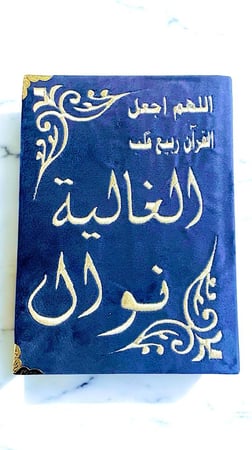 اللهم إجعل
القرآن ربيع قلب
الغالية
نوال